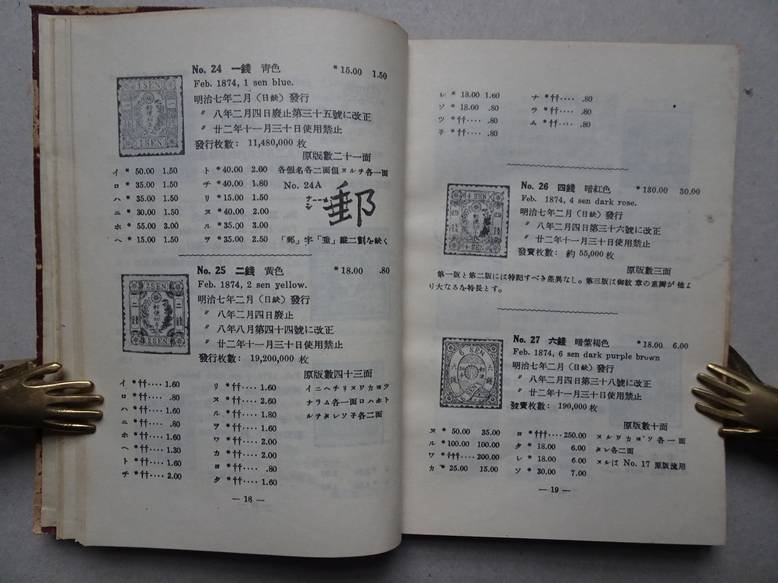 No. 24 一錢 青色 *15.00 1.50
Feb. 1874, 1 sen blue.
明治七年二月(日缺)發行
〃 八年二月四日廢止第三十五號に改正
〃 廿二年十一月三十日使用禁止
發行枚數： 11,480,000 枚
原版數二十一面
イ *50.00 1.50 ト *40.00 2.00 各個名各二面但ヌルチ各一面
ロ *35.00 1.50 チ *40.00 1.80 No. 24A
ハ *35.00 1.50 リ *15.00 1.50 郵
ニ *30.00 1.50 ヌ *40.00 2.00
ホ *55.00 3.00 ル *35.00 3.00
ヘ *15.00 1.50 ヲ *35.00 2.50 「郵」字「垂」縱二劃を缺く
No. 25 二錢 黃色 *18.00 .80
Feb. 1874, 2 sen yellow.
明治七年二月(日缺)發行
〃 八年二月四日廢止
〃 八年八月第四十四號に改正
〃 廿二年十一月三十日使用禁止
發行枚數： 19,200,000 枚
原版數四十三面
イ *††···· 1.60 リ *††···· 1.60 イニヘチリヌワカヨツ
ロ *††···· .80 ヌ *††···· 2.60 ナラム各一面ロハホト
ハ *††···· 1.60 ル *††···· 1.80 ルヲタレソ子各二面
ニ *††···· .80 ヲ *††···· 1.60
ホ *††···· 1.60 ワ *††···· 2.00
ヘ *††···· 1.30 カ *††···· 2.00
ト *††···· 1.60 ヨ *††···· .80
チ *††···· 2.00 タ *††···· 1.60
— 18 —
レ *18.00 1.60 ナ *††···· .80
ソ *18.00 .80 ラ *††···· .80
ツ *††···· .80 ム *††···· .80
子 *††···· .80
No. 26 四錢 暗紅色 *130.00 30.00
Feb. 1874, 4 sen dark rose.
明治七年二月(日缺)發行
〃 八年二月四日第三十六號に改正
〃 廿二年十一月三十日使用禁止
發賣枚數： 約 55,000 枚
原版數三面
第一版と第二版には特記すべき差異なし。第三版は御紋章の重瓣が他よ
り大なるを特長とす。
No. 27 六錢 暗紫褐色 *18.00 6.00
Feb. 1874, 6 sen dark purple brown
明治七年二月(日缺)發行
〃 八年二月四日第三十八號に改正
〃 廿二年十一月三十日使用禁止
發賣枚數： 190,000 枚
原版數十面
ヌ *50.00 35.00 ヨ *†††····250.00 ヌルワカヨソ各一面
ル *100.00 100.00 タ *18.00 6.00 タレ各二面
ワ *†††····200.00 レ *18.00 6.00 ヌルは No. 17 原版流用
カ *25.00 15.00 ソ *30.00 7.00
— 19 —